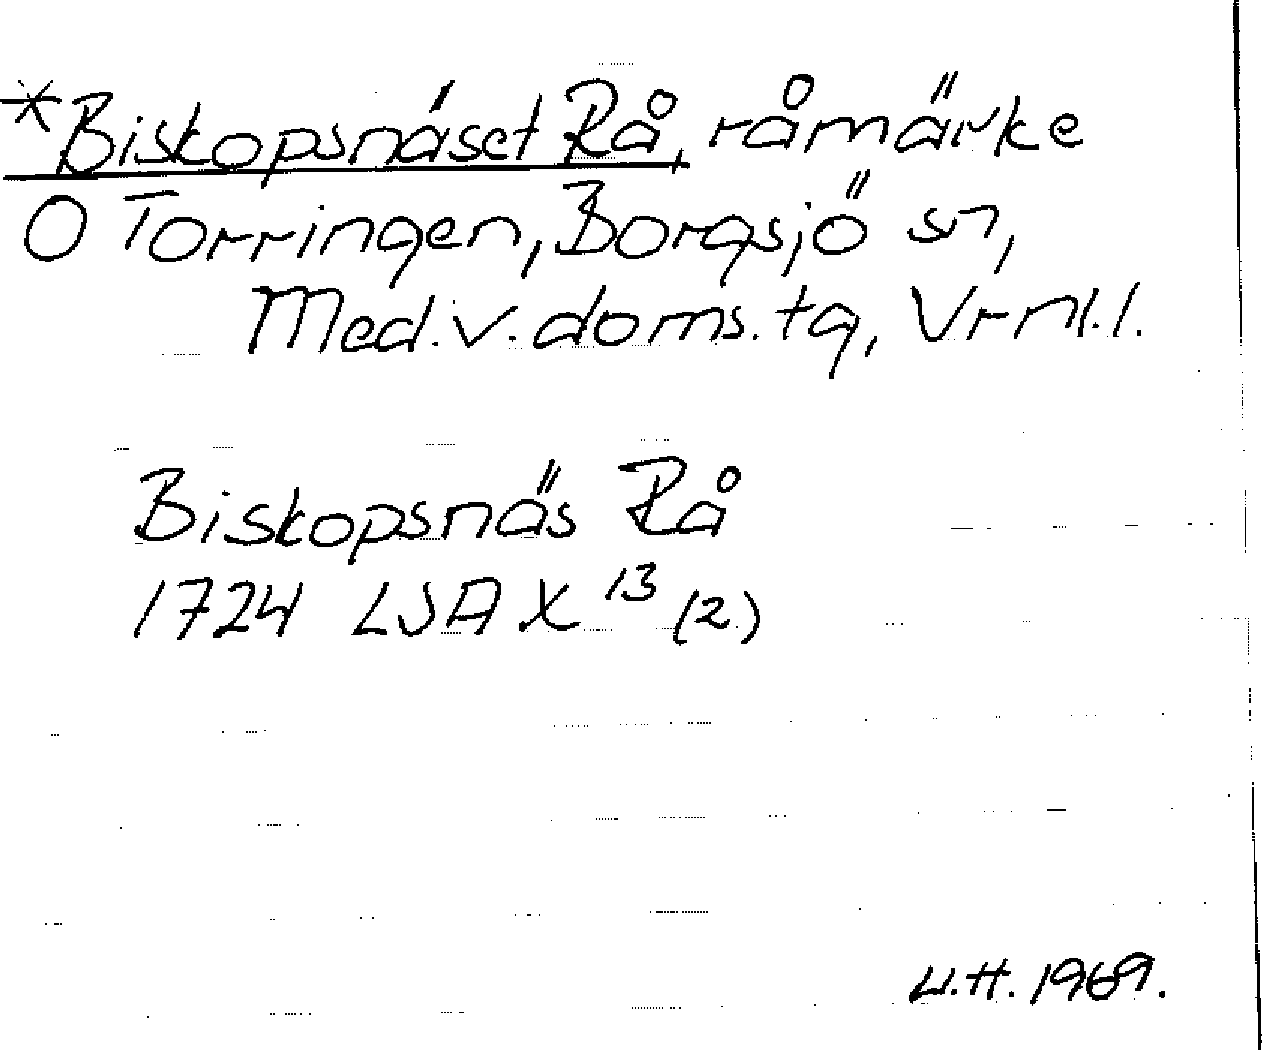 *Biskopsnäset Rå, råmärke
O Torringen, Borgsjö sn,
Med.v.doms.tg, Vrnl.l.
Biskopsnäs Rå
1724 LSA X 13 (2.)
U.H. 1969.